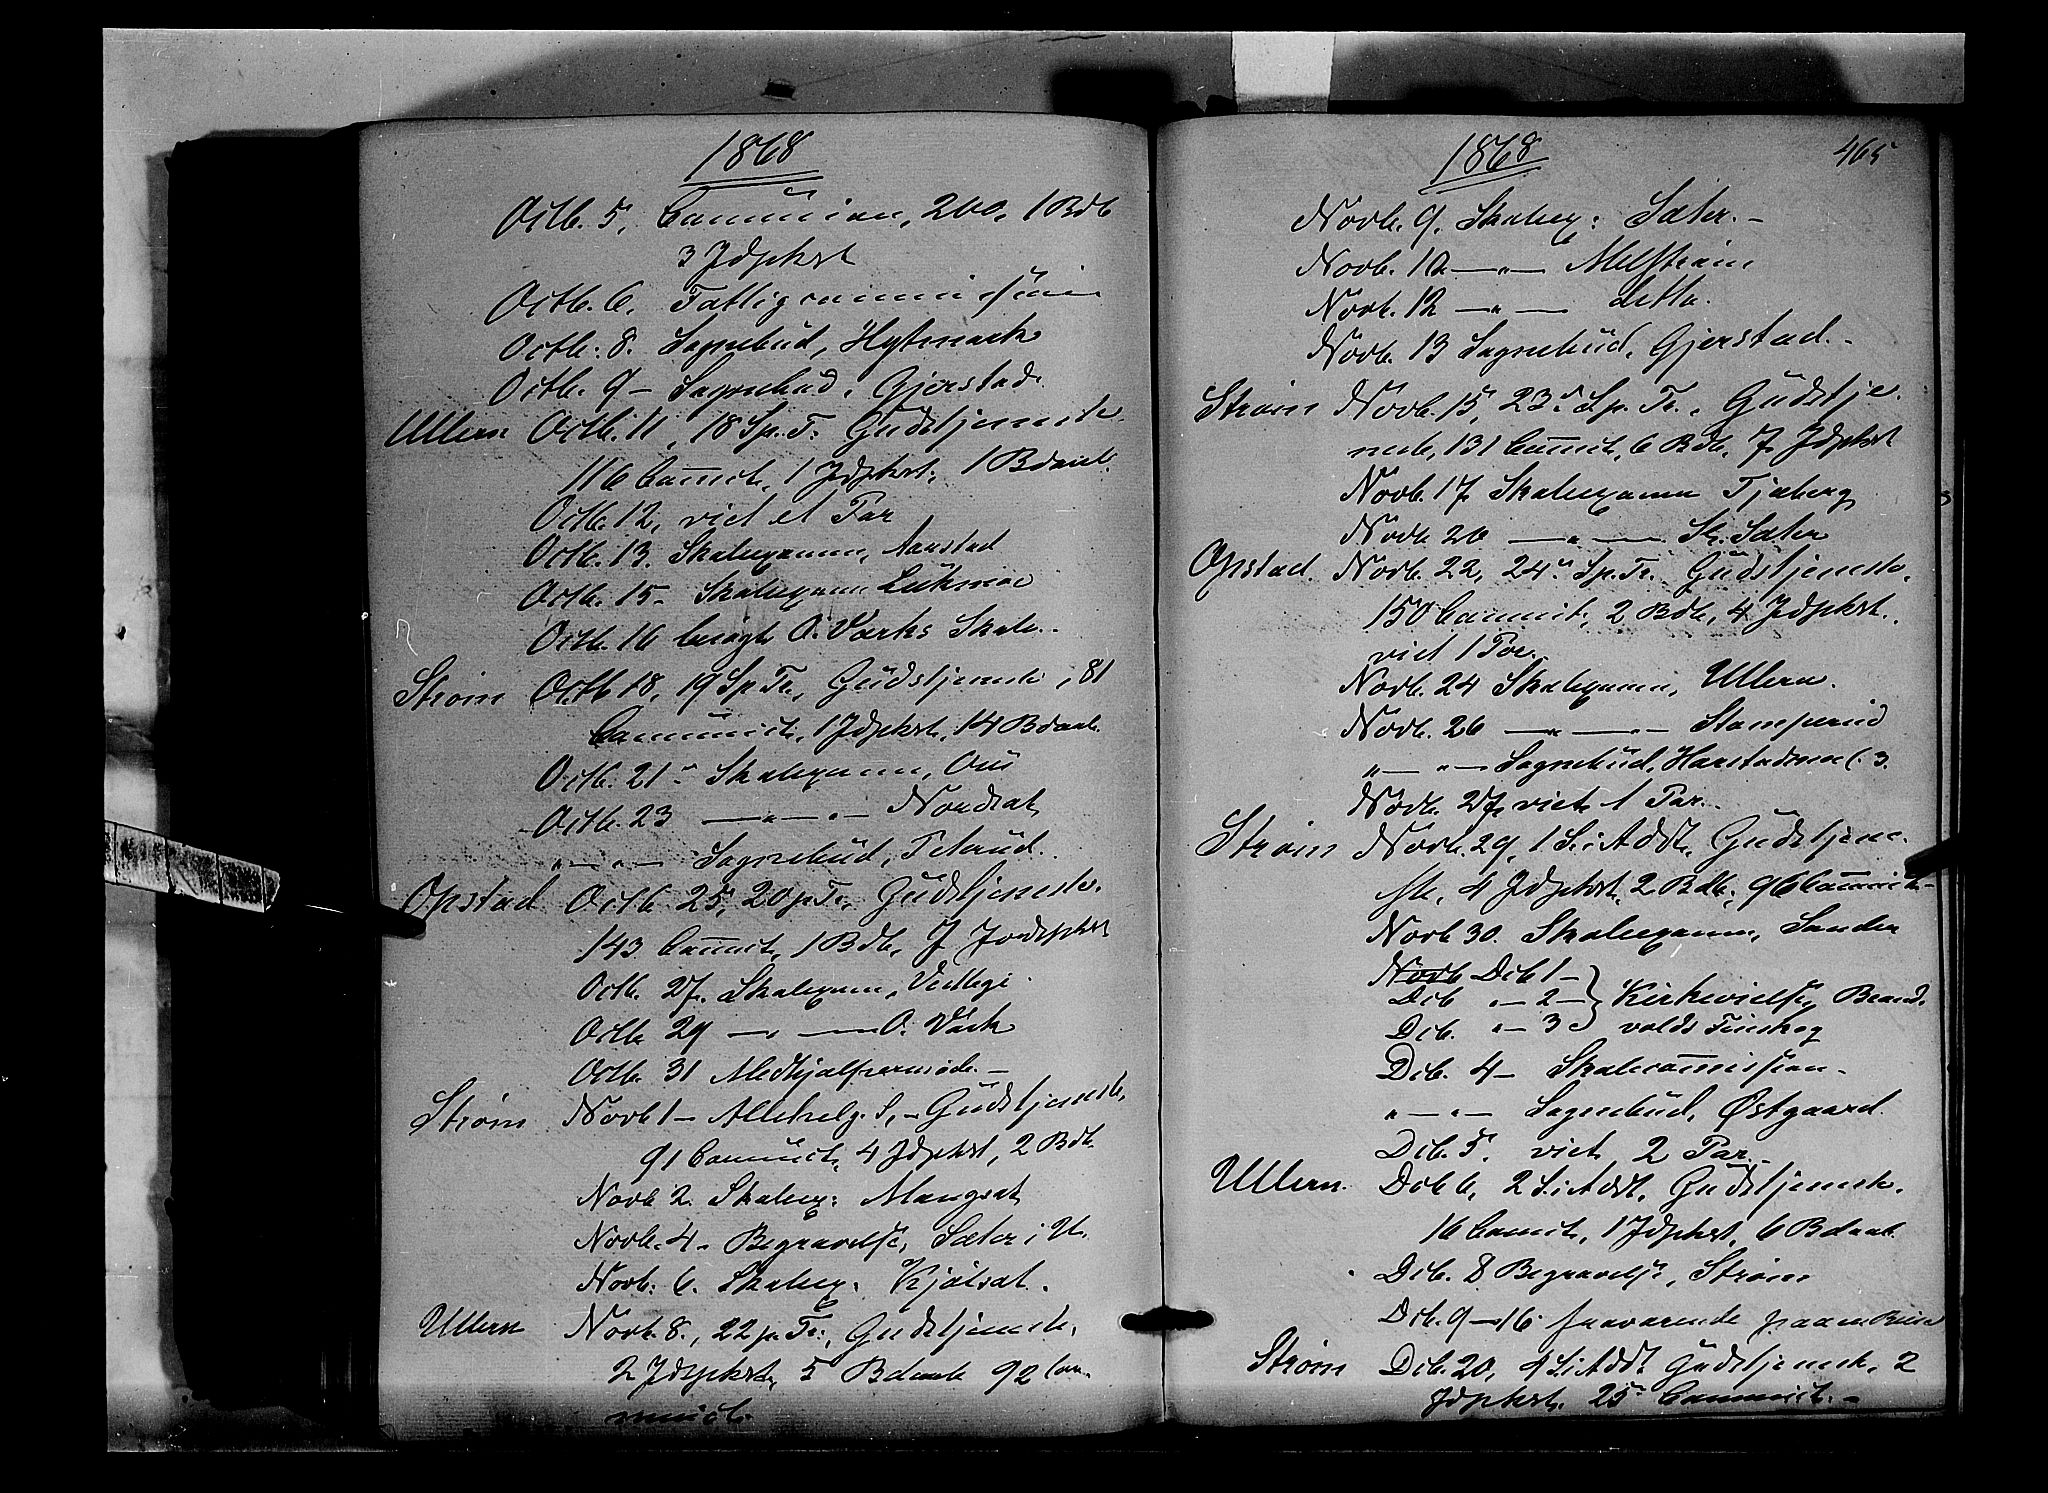 1868
Octb. 5, Communion, 200, 1 Bdb
3 Jdpkst
Octb. 6, Fattigcommission
Octb: 8. Sognebud, Hytmark
Octb. 9 – Sognebud, Gjerstad.
Ullern Octb. 11, 18 Sp. Tr. Gudstjeneste.
116 Com̅ct, 1 Jdpkst, 1 Bdaab.
Octb. 12, viet et Par
Octb. 13. Skolexamen, Aarstad
Octb. 15 – Skolexamen Lukmoe
Octb. 16 besøgt O. Værks Skole.
Strøm Octb 18, 19 Sp Tr., Gudstjeneste, 81
Communict, 1 Jdpkst, 14 Bdaab.
Octb. 21 – Skolexamen, Ous
Octb. 23 —„—„— Nordsat
„—„— Sognebud, Feterud.
Opstad Octb. 25, 20 p. Tr, Gudstjeneste.
143 Com̅ct, 1 Bdb, 7 Jordspkst
Octb. 27. Skolexamen,
Octb. 29 —„— O. Værk
Octb. 31 Medhjælpermøde. –
Strøm Novb 1 – Allehelg: S, – Gudstjeneste,
91 Communict, 4 Jdpkst, 2 Bdb.
Novb 2. Skolex: Mangsat
Novb. 4 – Begravelse, Sæter i U.
Novb: 6. Skolex: Kjølsat.
Ullern Novb. 8., 22 p. Tr., Gudstjeneste,
2 Jdspkst, 5 Bdaab 92 Com-
munict.
1868 465
Novb. 9. Skolex: Sæter. –
Novb. 10 —„— Melstrøm
Novb. 12 —„— detto.
Novb. 13 Sognebud, Gjerstad. –
Strøm Novb. 15, 23 S. p. Tr., Gudstje-
neste, 131 Com̅ct, 6 Bdb, 7 Jdpkst
Novb. 17 Skolexamen Tjaberg
Novb 20 —„— St. Sæter
Opstad. Novb. 22, 24 S. p. Tr. Gudstjeneste,
150 Communict, 2 Bdb, 4 Jdpkst.
viet 1 Par.
Novb. 24 Skolexamen, Ullern.
Novb. 26 —„—„— Stomperud
„—„— Sognebud, Harstadsmoe
Novb. 27, viet 1 Par.
Strøm Novb. 29, 1 S. i Addt, Gudstjene-
ste, 4 Jdpkst, 2 Bdb, 96 Com̅unict. –
Novb 30. Skolexamen, Sander
Novb Dcb 1 –
Dcb „– 2 – } Kirkevielse, Brand-
Dcb. „– 3 volds Finskog
Dcb. 4 – Skolecom̅ission. –
„—„— Sognebud, Østgaard.
Dcb. 5. viet 2 Par. –
Ullern. Dcb 6, 2 S. i Addt. Gudstjeneste.
16 Comct, 1 Jdpkst, 6 Bdaab.
Dcb. 8 Begravelse, Strøm
Dcb. 9 – 16 fraværende paa en Reise
Strøm Dcb. 20, 4 S. i Addt Gudstjeneste, 2
Jdpkst. 25 Communict. –